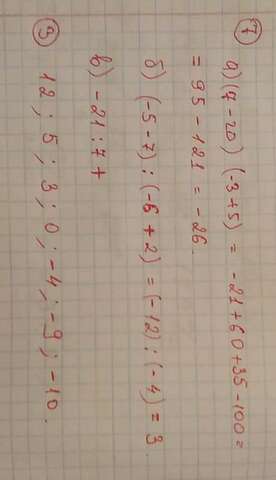 ⑦ а) (7 - 20) (-3 + 5) = -21 + 60 + 35 - 100 =
= 95 - 121 = -26.
б) (-5 - 7) : (-6 + 2) = (-12) : (-4) = 3.
в) -21 : 7 +
③
12 ; 5 ; 3 ; 0 ; -4 ; -9 ; -10.